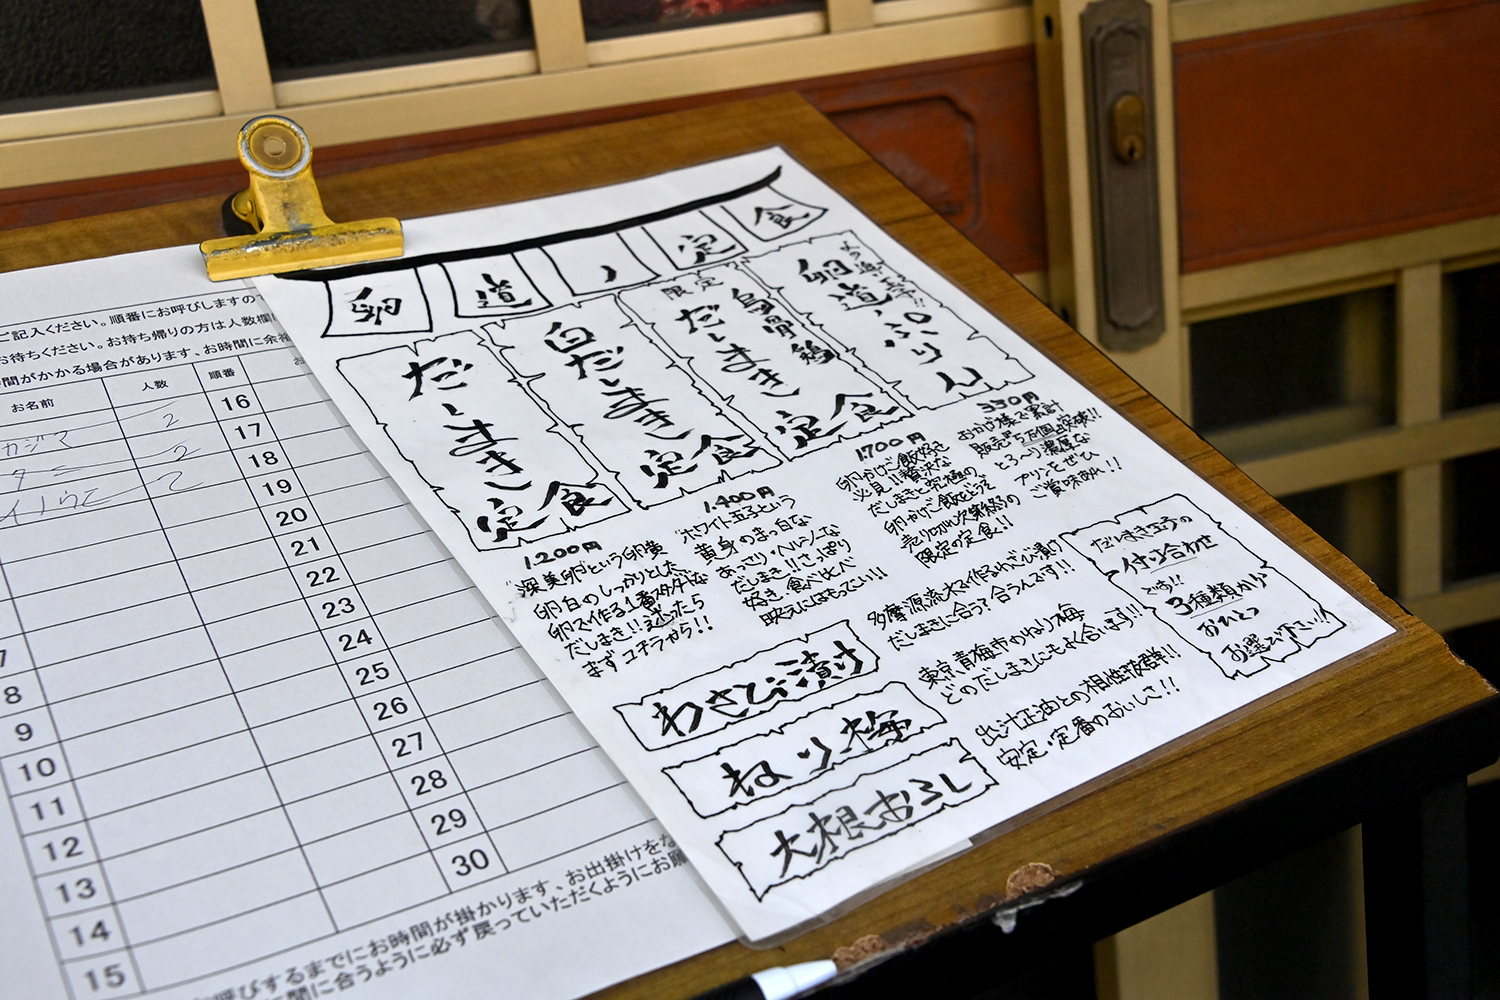 ご記入ください。順番にお呼びしますので
お待ちください。お持ち帰りの方は人数欄に
時間がかかる場合があります、お時間に余裕
お名前
人数
順番
カジマ
2
2
2
7
8
9
10
11
12
13
14
15
16
17
18
19
20
21
22
23
24
25
26
27
28
29
30
お呼びするまでにお時間が掛かります、お出掛けをな
時間に合うように必ず戻っていただくようにお願
卵道ノ定食
だしまき
定食
1.200円
"深美卵"という卵黄
卵白のしっかりとした
卵で作る1番スタンダードな
だしまき!!迷ったら
まずコチラから!!
白だしまき
定食
1.400円
"ホワイト玉子という
黄身のまっ白な
あっさり・ヘルシーな
だしまき!!さっぱり
好き、食べ比べ
映えにはもってこい!!
限定
烏骨鶏
だしまき
定食
1700円
卵かけご飯好き
必見!!贅沢な
だしまきと究極の
卵かけご飯をどうぞ
売り切れ次第終了の
限定の定食!!
卵道ぷりん
330円
おかげ様で累計
販売"5万個"突破!!
とろ〜り濃厚な
プリンをぜひ
ご賞味あれ!!
だしまき定食の
付け合わせ
では!!
3種類から
おひとつ
お選び下さい!!
わさび漬け
多摩源流水で作るわさび漬け
だしまきに合う?合うんです!!
ねり梅
東京、青梅市のねり梅
どのだしまきにもよく合います!!
大根おろし
出汁正油との相性抜群!!
安定・定番のおいしさ!!